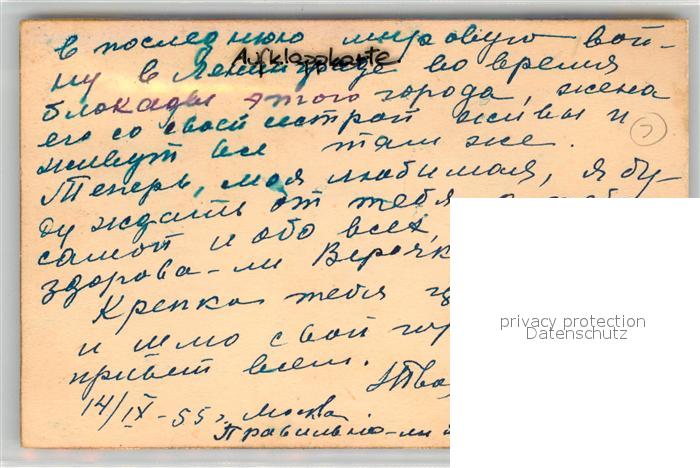 в последнюю мировую вой-
Aufklappkarte.
ну в Ленинграде во время
блокады этого города, жена
его со своей сестрой живы и
живут все там же.
Теперь, моя любимая, я бу-
ду ждать от тебя о
самой и обо всех,
здорова-ли Верочк
Крепко тебя
и шлю свой
привет всем.
Тво
14/IX-55 г, Москва.
Правильно-ли
privacy protection
Datenschutz